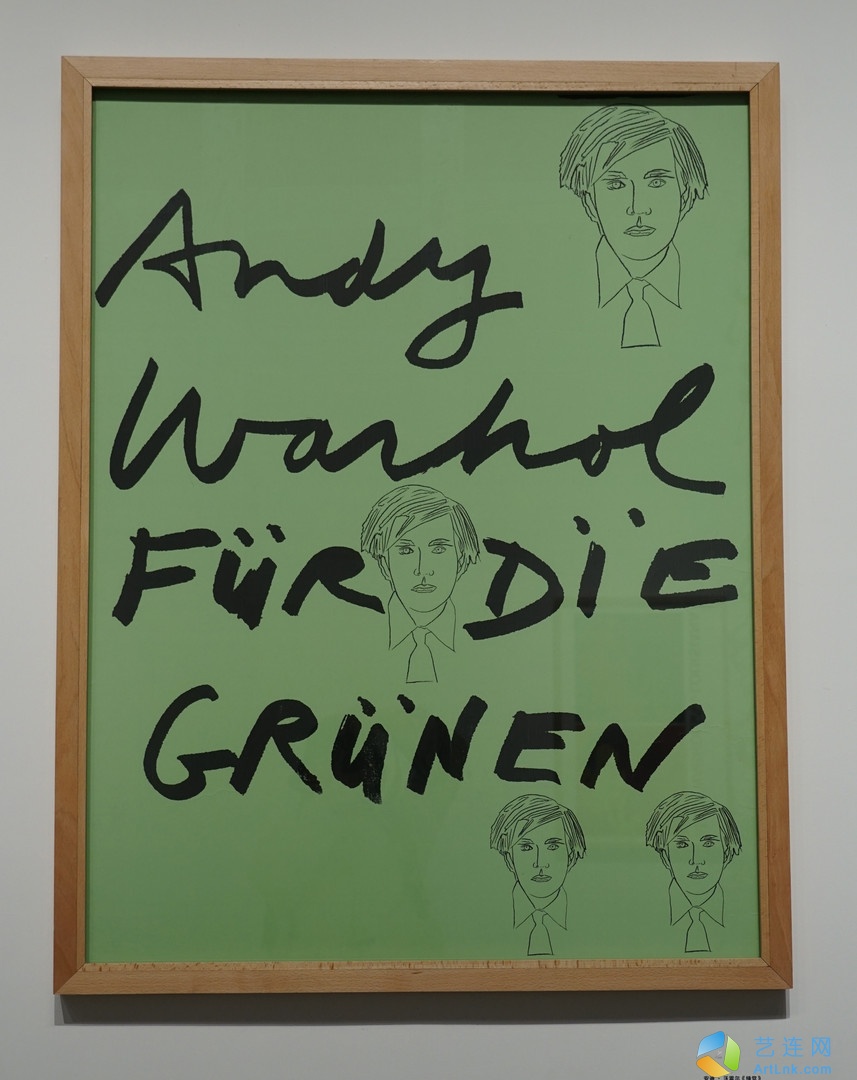 Andy
Warhol
FÜR DÏE
GRÜNEN
艺连网
ArtLnk.com